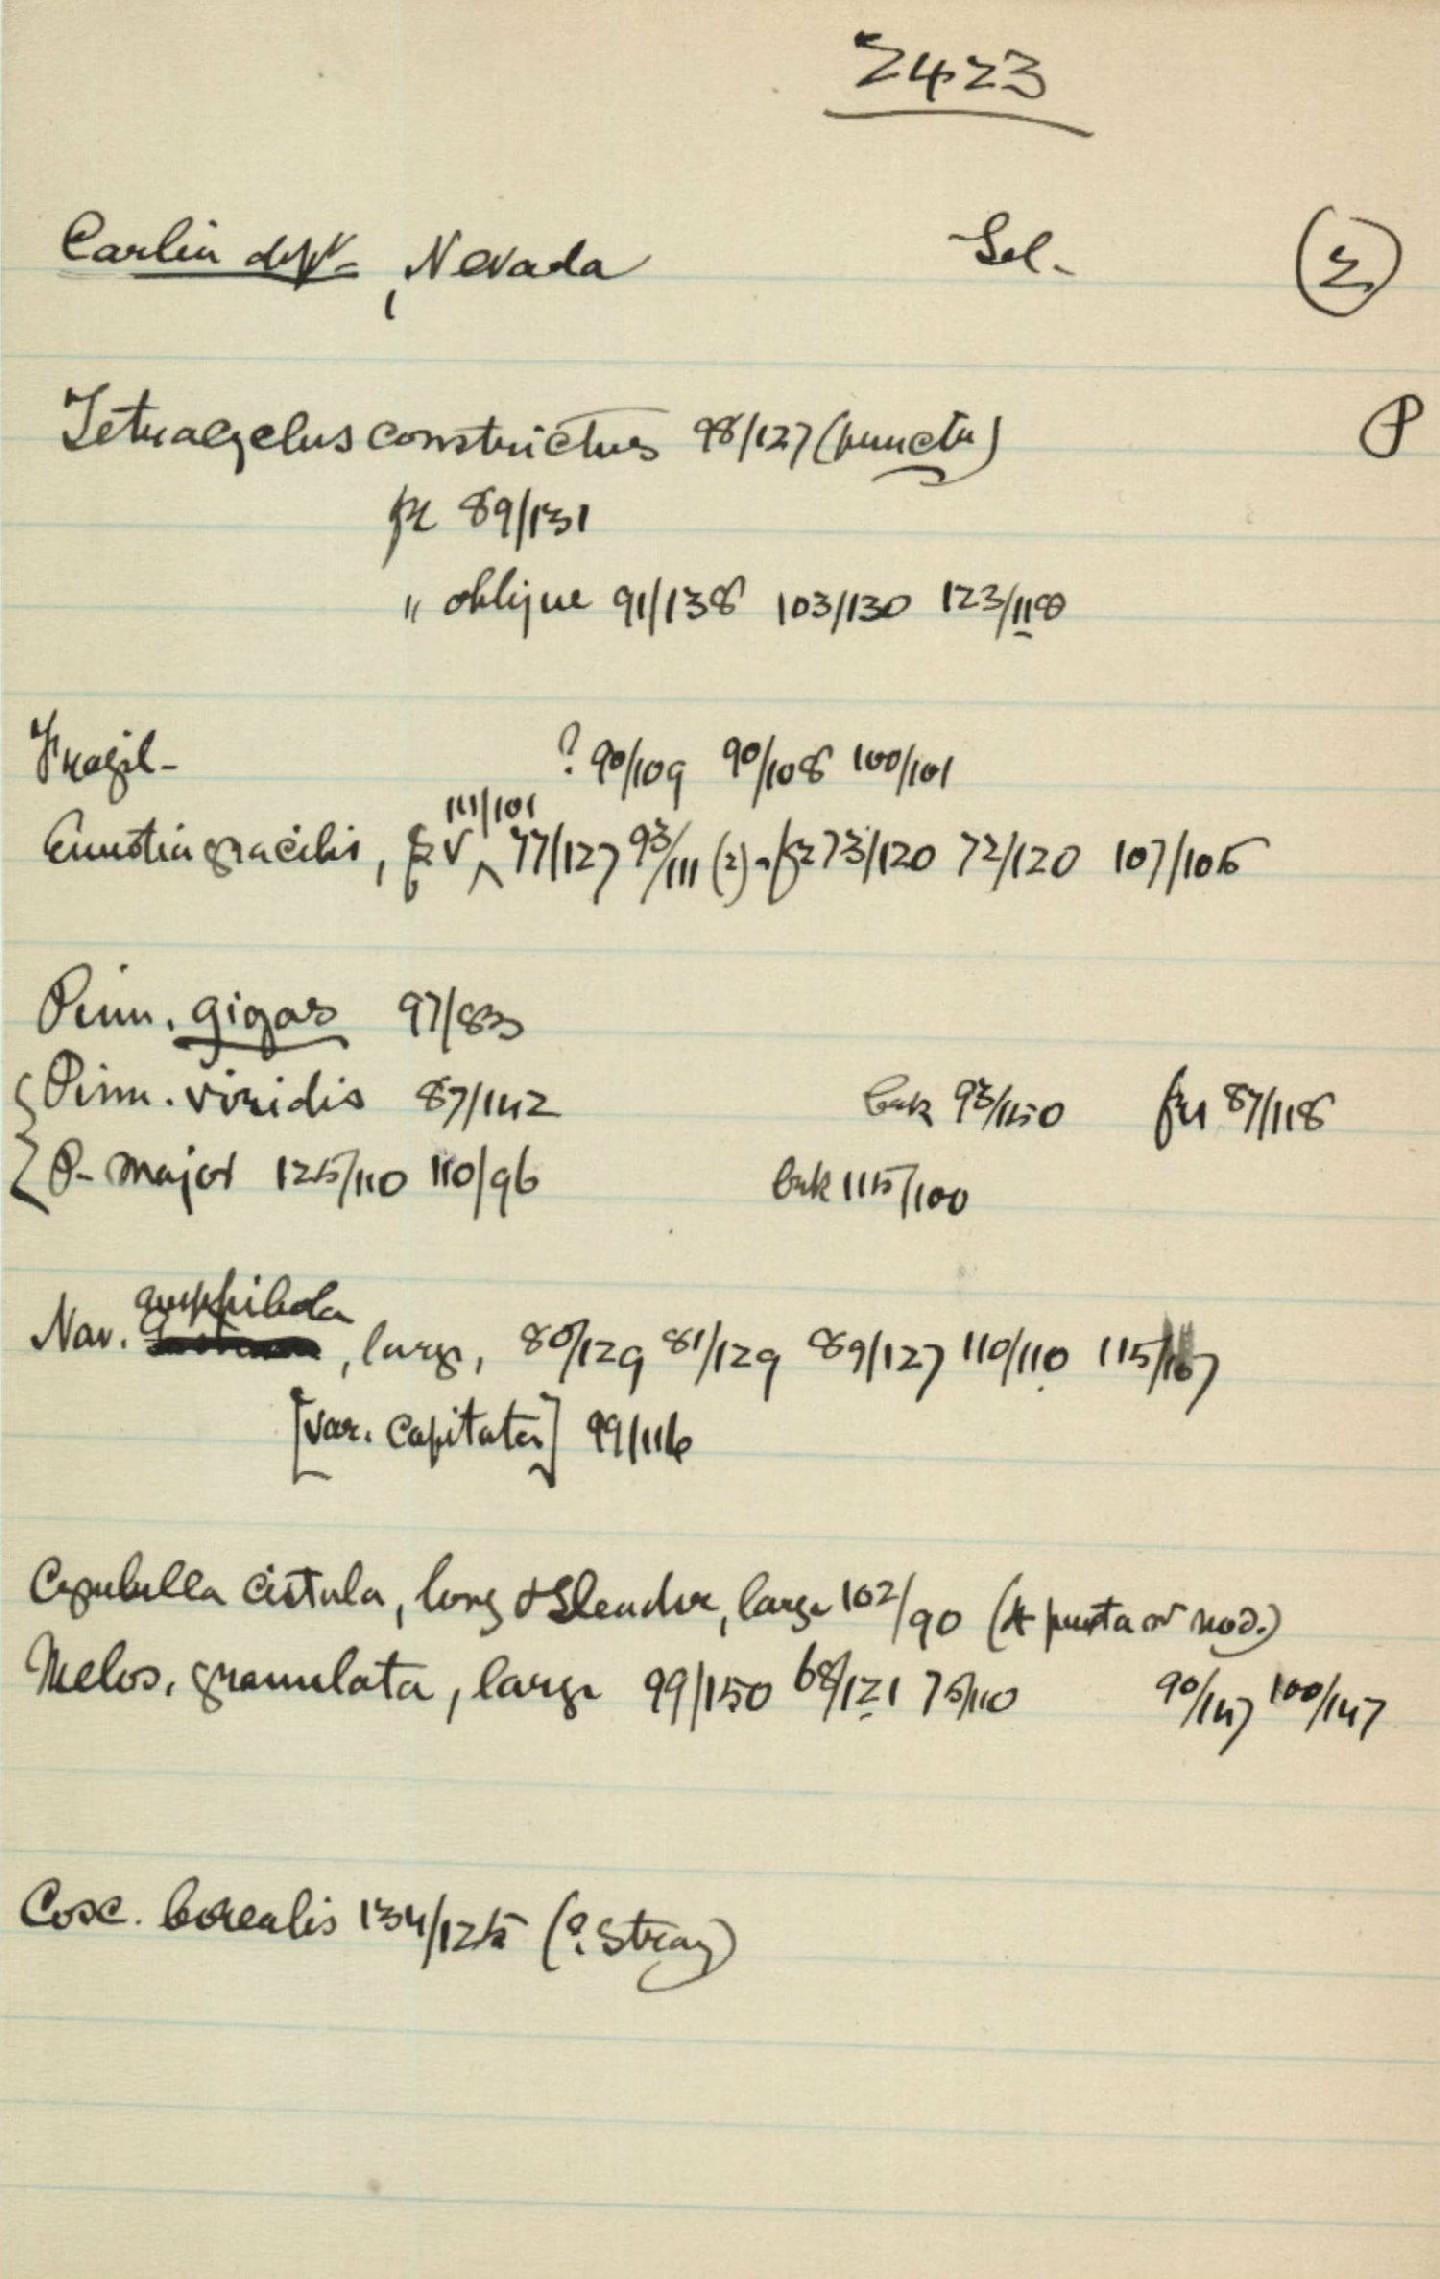 2423
Carlin dept., Nevada Sel. (2)
Tetracyclus constrictus 98/127 (puncta) P
fr 89/131
" oblique 91/138 103/130 123/118
Fragil- ? 90/109 90/108 100/101
111/101
Eunotia gracilis, V ^ 77/127 93/111 (2) - 73/120 72/120 107/105
Pinn. gigas 97/83
Pinn. viridis 87/142 bnk 93/150 87/118
P. major 125/110 110/96 bnk 115/100
amphibola
Nav. , large, 80/129 81/129 89/127 110/110 115/107
[var. capitata] 99/116
Cymbella cistula, long & slender, large 102/90 (4 puncta nod.)
Melos. granulata, large 99/150 68/121 75/110 90/147 100/147
Cosc. borealis 134/125 (? stray)